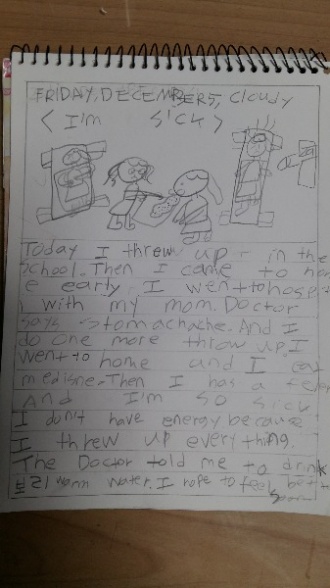 FRIDAY, DECEMBER5, cloudy
< I'm sick >
Today I threw up in the
school. Then I came to hom
e early. I went to hospit
with my mom. Doctor
says stomachache. And I
do one more throw up, I
went to home and I eat
medisne. Then I has a fever
And I'm so sick
I don't have energy because
I threw up everything.
The Doctor told me to drink
보리 warm water. I hope to feel bett
soon